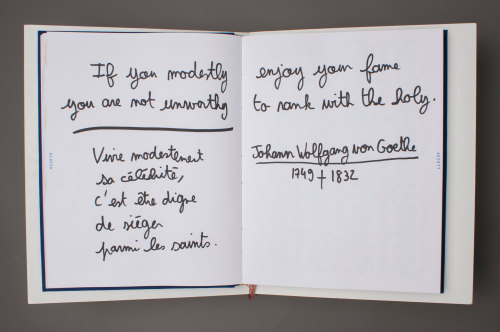 If you modestly enjoy your fame
you are not unworthy to rank with the holy.
Vivre modestement
sa célébrité,
c'est être digne
de siéger
parmi les saints.
Johann Wolfgang von Goethe
1749 † 1832